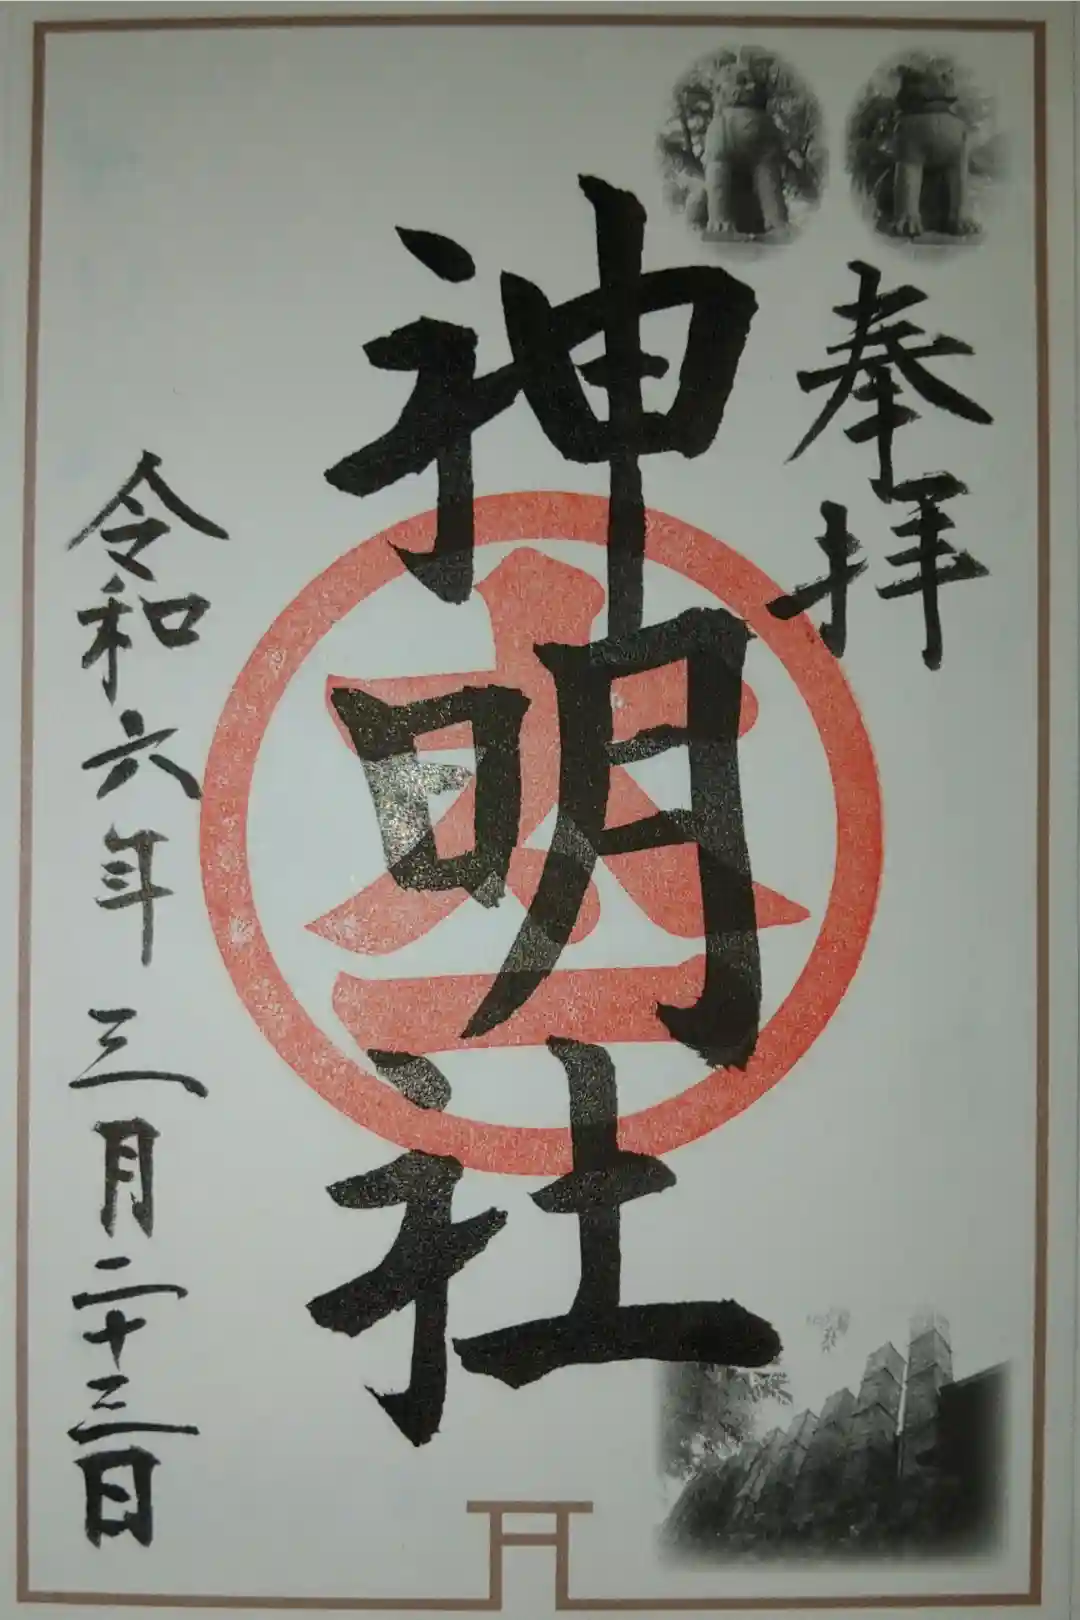 奉拝
神明社
令和六年三月二十三日